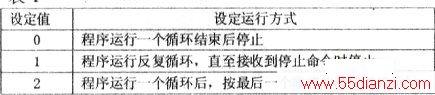 设定值 设定运行方式
0 程序运行一个循环结束后停止
1 程序运行反复循环，直至接收到停止命令时停止
2 程序运行一个循环后，按最后一
www.55dianzi.com